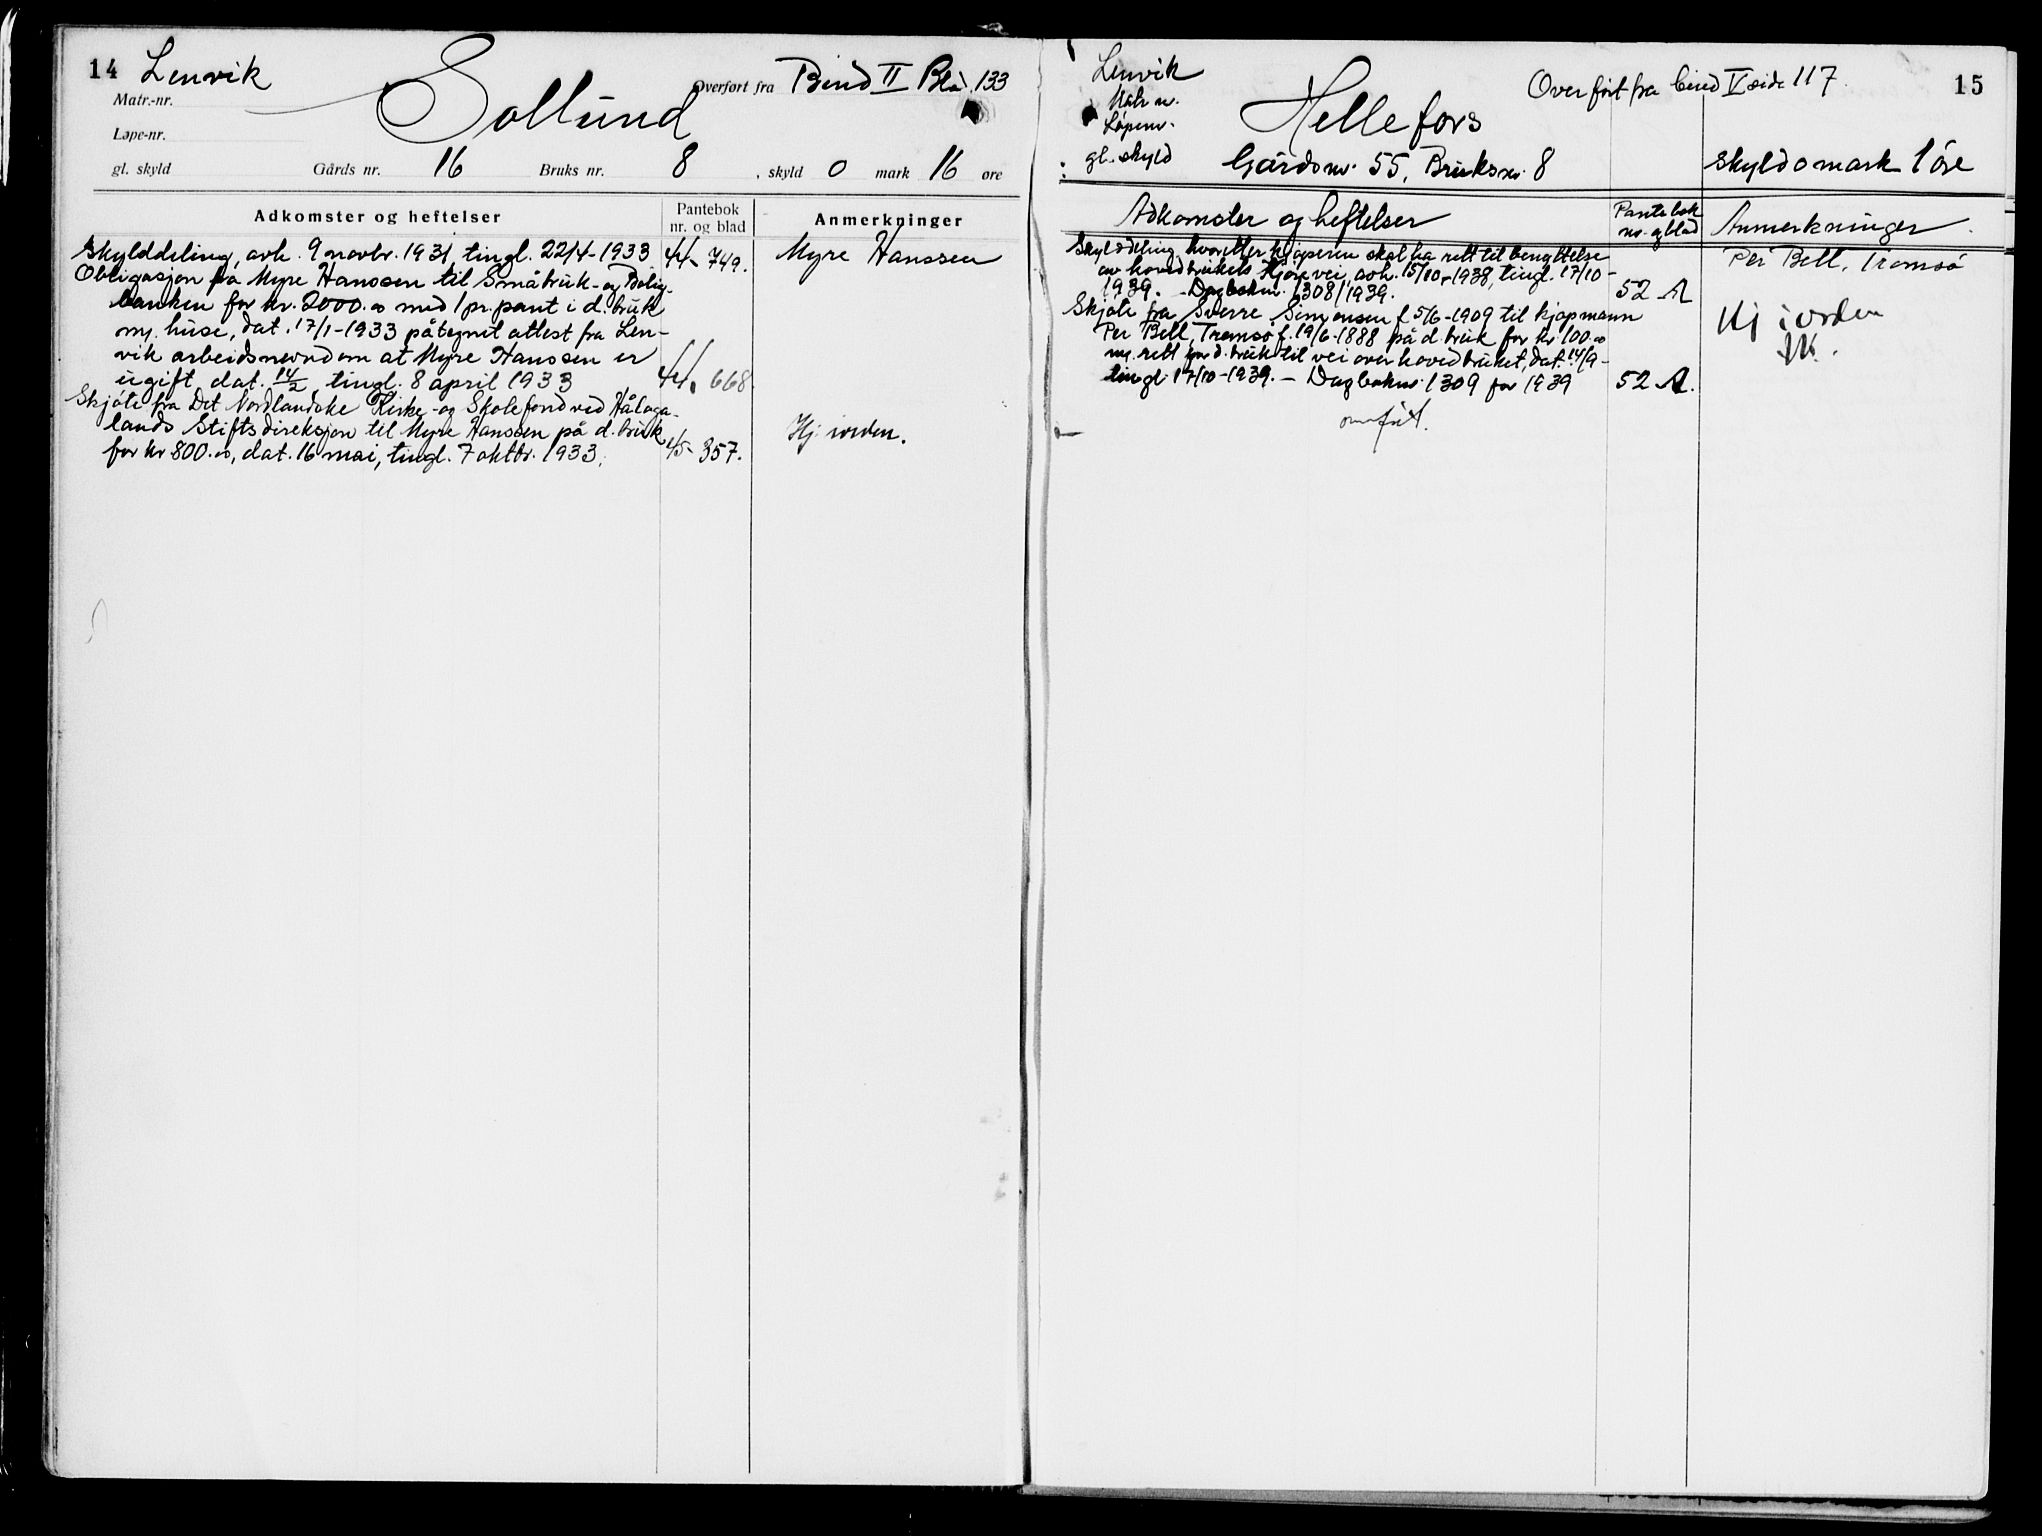 14 Lenvik
Sollund
Overført fra Bind II Bla. 133
Matr.-nr.
Løpe-nr.
gl. skyld Gårds nr. 16 Bruks nr. 8, skyld 0 mark 16 øre
Adkomster og heftelser Pantebok nr. og blad Anmerkninger
Skylddeling, avh. 9 novbr. 1931, tingl. 22/4-1933 44-749. Myre Hanssen
Obligasjon fra Myre Hanssen til Småbruk- og Bolig-
banken for kr. 2000.00 med 1 pr. pant i d. bruk
m. huse, dat. 17/1-1933 påtegnet attest fra Len-
vik arbeidsnevnd om at Myre Hanssen er
ugift dat. 14/2 tingl. 8 april 1933 44. 668
Skjöte fra Det Nordlandske Kirke- og Skolefond ved Håloga-
lands Stiftsdireksjon til Myre Hanssen på d. bruk
for kr 800.00, dat. 16 mai, tingl. 7 oktbr. 1933. 45-357. Hj. i orden.
Lenvik
Hellefors
Overfört fra bind V side 117.
15
Matr nr.
Löpenr.
gl. skyld Gårdsnr. 55, Bruksnr. 8 skyld 0 mark 1 öre
Adkomster og heftelser Pantebok nr. og blad Anmerkninger.
Skylddeling, hvoretter kjøperen skal ha rett til benyttelse Per Bell, Tromsö
av hovedbrukets kjörevei, avh. 15/10-1938, tingl. 17/10-
1939. - Dagboknr. 1308/1939. 52 A
Skjöte fra Sverre Simonsen f. 5/6-1909 til kjøpmann Hj i orden
Per Bell, Tromsö f. 19/6-1888 på d. bruk for kr 100.00
m. rett for d. bruk til vei over hovedbruket, dat. 14/9-
tingl. 17/10-1939. - Dagboknr. 1309 for 1939 52 A.
overfört.